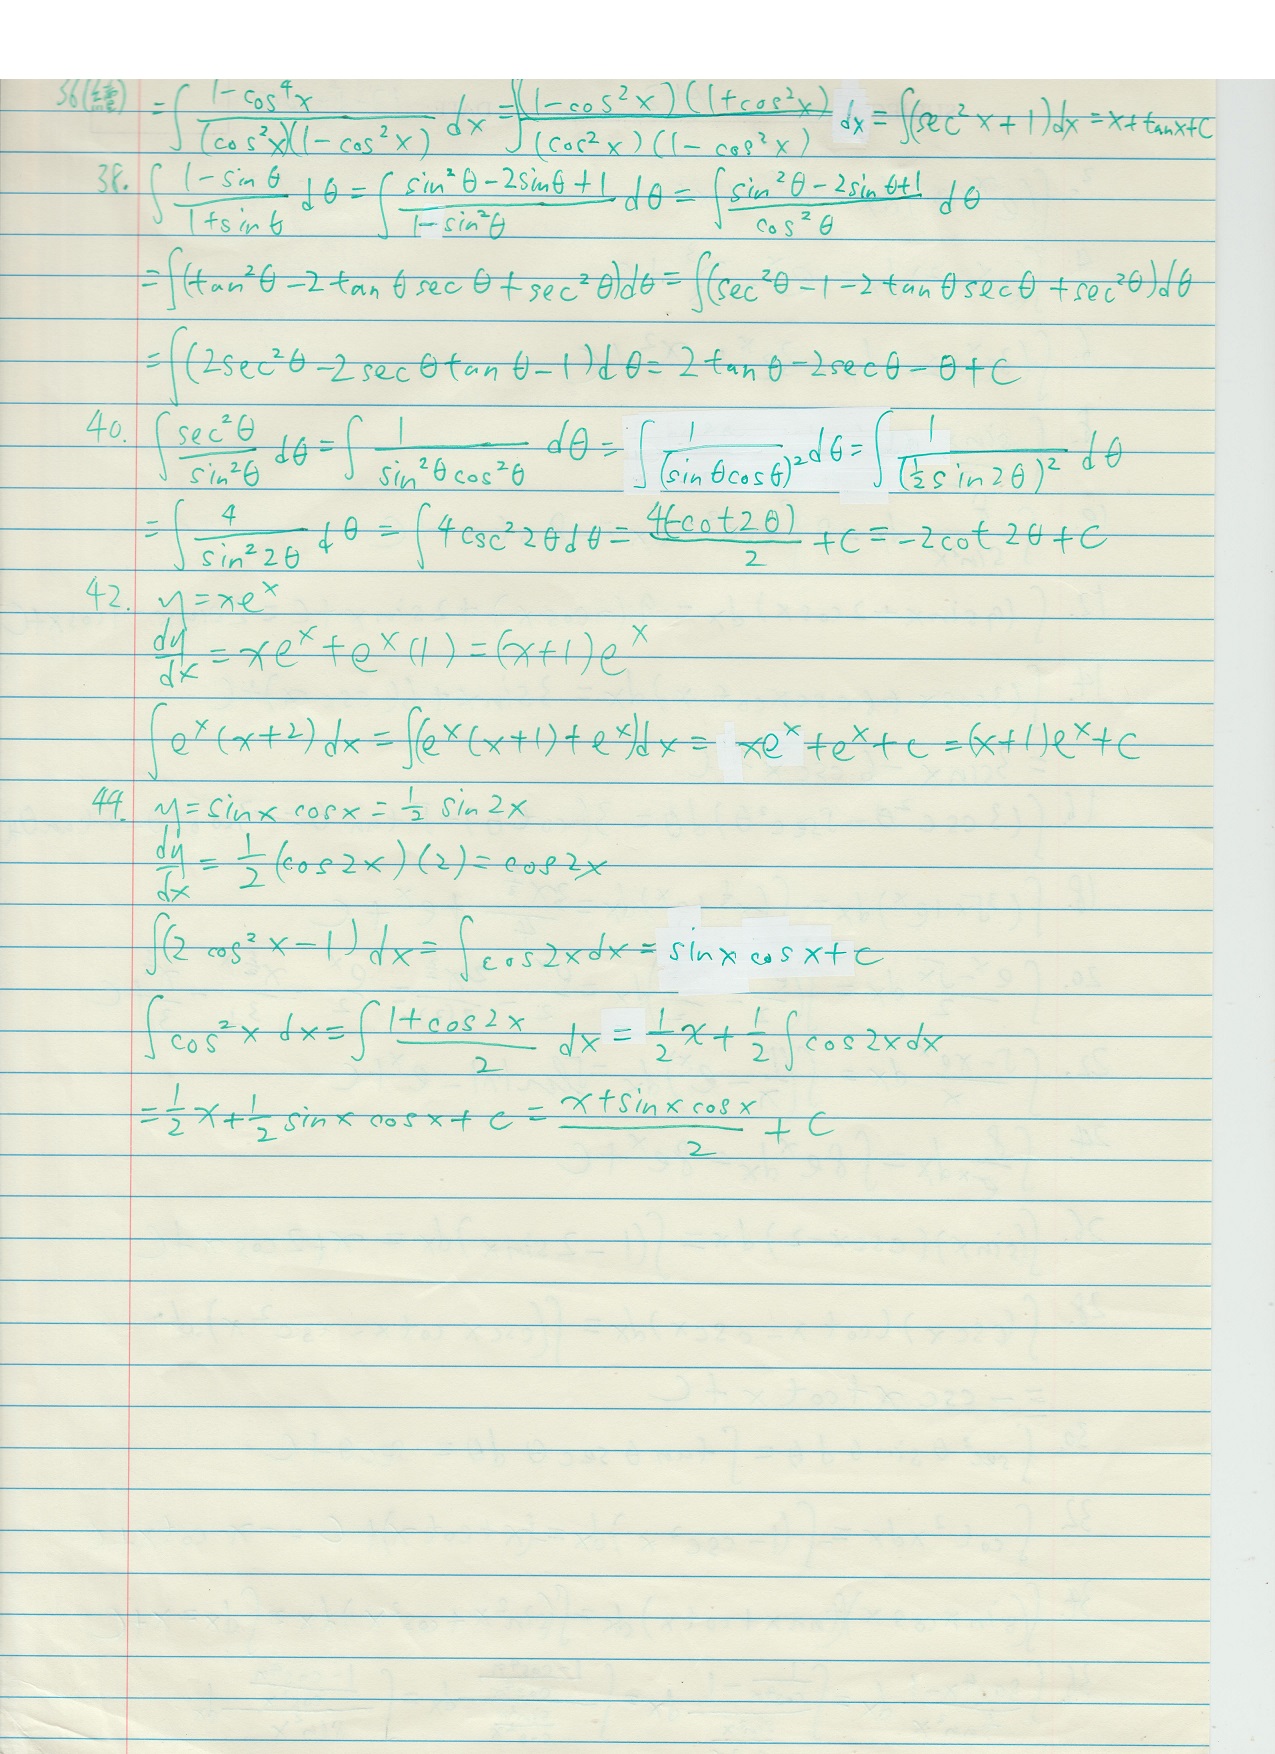 36(續) =∫ (1-cos⁴x)/((cos²x)(1-cos²x)) dx =∫ ((1-cos²x)(1+cos²x))/((cos²x)(1-cos²x)) dx = ∫(sec²x+1)dx = x+tanx+C
38. ∫ (1-sinθ)/(1+sinθ) dθ = ∫ (sin²θ-2sinθ+1)/(1-sin²θ) dθ = ∫ (sin²θ-2sinθ+1)/(cos²θ) dθ
=∫(tan²θ-2tanθsecθ+sec²θ)dθ = ∫(sec²θ-1-2tanθsecθ+sec²θ)dθ
=∫(2sec²θ-2secθtanθ-1)dθ = 2tanθ-2secθ-θ+C
40. ∫ (sec²θ)/(sin²θ) dθ = ∫ 1/(sin²θcos²θ) dθ = ∫ 1/(sinθcosθ)² dθ = ∫ 1/(½sin2θ)² dθ
=∫ 4/(sin²2θ) dθ = ∫4csc²2θdθ = 4(-cot2θ)/2 +C = -2cot2θ+C
42. y=xeˣ
dy/dx = xeˣ+eˣ(1) = (x+1)eˣ
∫eˣ(x+2)dx = ∫(eˣ(x+1)+eˣ)dx = xeˣ+eˣ+C = (x+1)eˣ+C
44. y=sinx cosx = ½ sin2x
dy/dx = ½(cos2x)(2) = cos2x
∫(2cos²x-1)dx = ∫cos2xdx = sinx cosx+C
∫cos²x dx = ∫ (1+cos2x)/2 dx = ½x+½∫cos2xdx
=½x+½sinx cosx+C = (x+sinx cosx)/2 +C